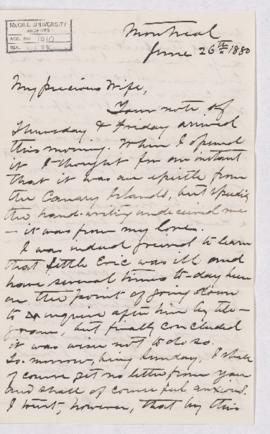 McGILL UNIVERSITY
ARCHIVES
ACC. NO. 1010
REF.
Montreal
June 26th 1880
My precious Wife,
Your note of
Thursday & Friday arrived
this morning. When I opened
it I thought for an instant
that it was an epistle from
the Canary Islands, but
the hand-writing undeceived me
– it was from my love.
I was indeed grieved to learn
that little Eric was ill and
have several times to-day been
on the point of going down
to enquire after him by tele-
, but finally concluded
it was wiser not to do so.
To-morrow, being Sunday, I shall
of course get no letter from you
and shall of course feel anxious.
I trust, however, that by this